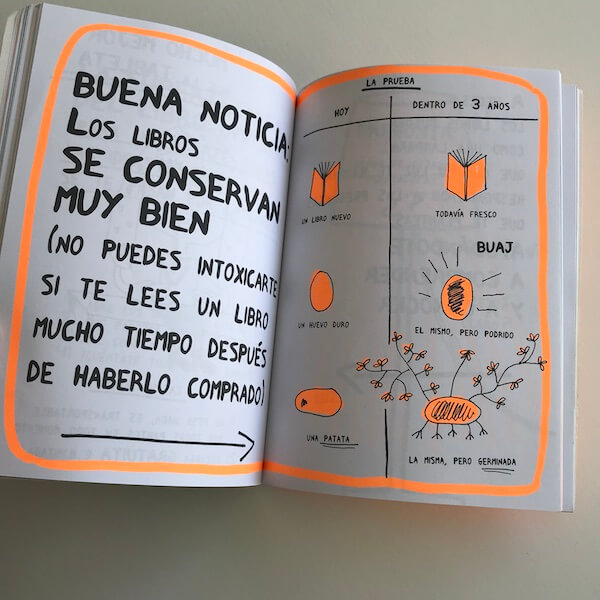 BUENA NOTICIA:
LOS LIBROS
SE CONSERVAN
MUY BIEN
(NO PUEDES INTOXICARTE
SI TE LEES UN LIBRO
MUCHO TIEMPO DESPUÉS
DE HABERLO COMPRADO)
LA PRUEBA
HOY
DENTRO DE 3 AÑOS
UN LIBRO NUEVO
TODAVÍA FRESCO
BUAJ
UN HUEVO DURO
EL MISMO, PERO PODRIDO
UNA PATATA
LA MISMA, PERO GERMINADA